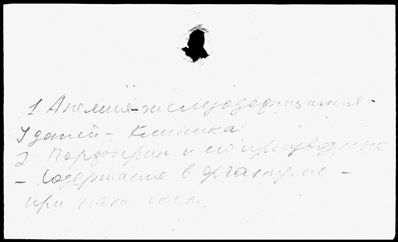 1 Анемия железодефицитная -
У детей - Клиника
2 Порфирин и его производные
- Содержание в организме -
при пат. сост.